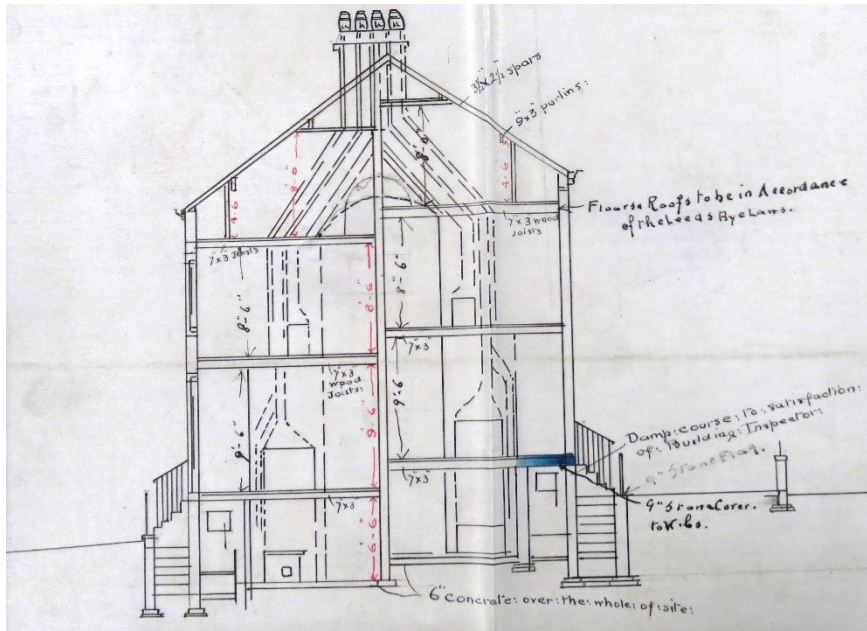 3½"x2½" spars
9"x3" purlins:
8-0
8-0"
4-6
4-6
Floors & Roofs to be in Accordance
of the Leeds Bye Laws.
7"x3 wood
Joists
7"x3" Joists
8"-6"
8-6"
8-6"
7"x3"
7"x3
wood
Joists:
9-6"
9-6
9-6
Damp: course: to: satisfaction:
of: Building: Inspector:
9" Stone Flag.
7"x3"
7"x3
9" Stone Cover.
6-6"
6" Concrete: over: the: whole: of: site: